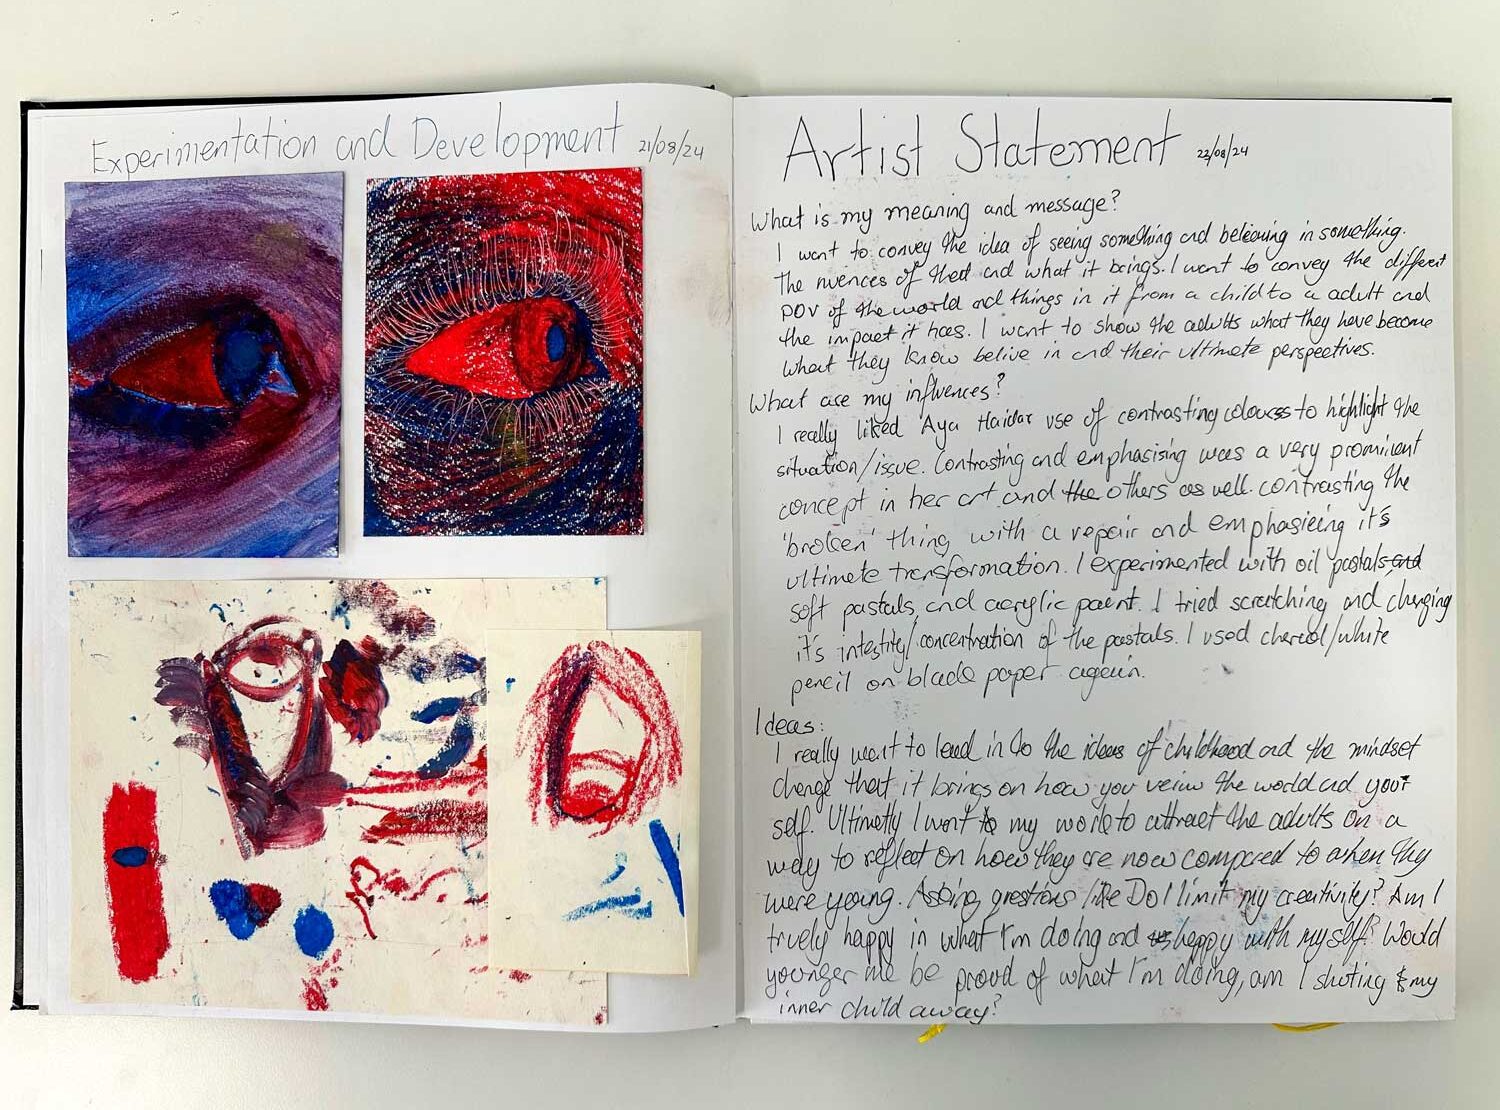 Experimentation and Development 21/08/24
Artist Statement 22/08/24
What is my meaning and message?
I want to convey the idea of seeing something and beleiving in something.
The nuences of that and what it brings. I want to convey the different
POV of the world and things in it from a child to a adult and
the impact it has. I want to show the adults what they have become
what they know belive in and their ultimate perspectives.
What are my influences?
I really liked Aya Haidar use of contrasting colours to highlight the
situation/issue. Contrasting and emphasising was a very prominent
concept in her art and the others as well. contrasting the
'broken' thing with a repair and emphasieing it's
ultimate transformation. I experimented with oil pastals, and
soft pastals, and acrylic paint. I tried scratching and changing
it's intestity/concentration of the pastals. I used charcol/white
pencil on black paper again.
Ideas:
I really want to lead in to the ideas of childhood and the mindset
change that it brings on how you veiw the world and your
self. Ultimatly I want to my work to attract the adults on a
way to reflect on how they are now compared to when they
were young. Asking questions like Do I limit my creativity? Am I
truely happy in what I'm doing and happy with myself? Would
younger me be proud of what I'm doing, am I shuting my
inner child away?